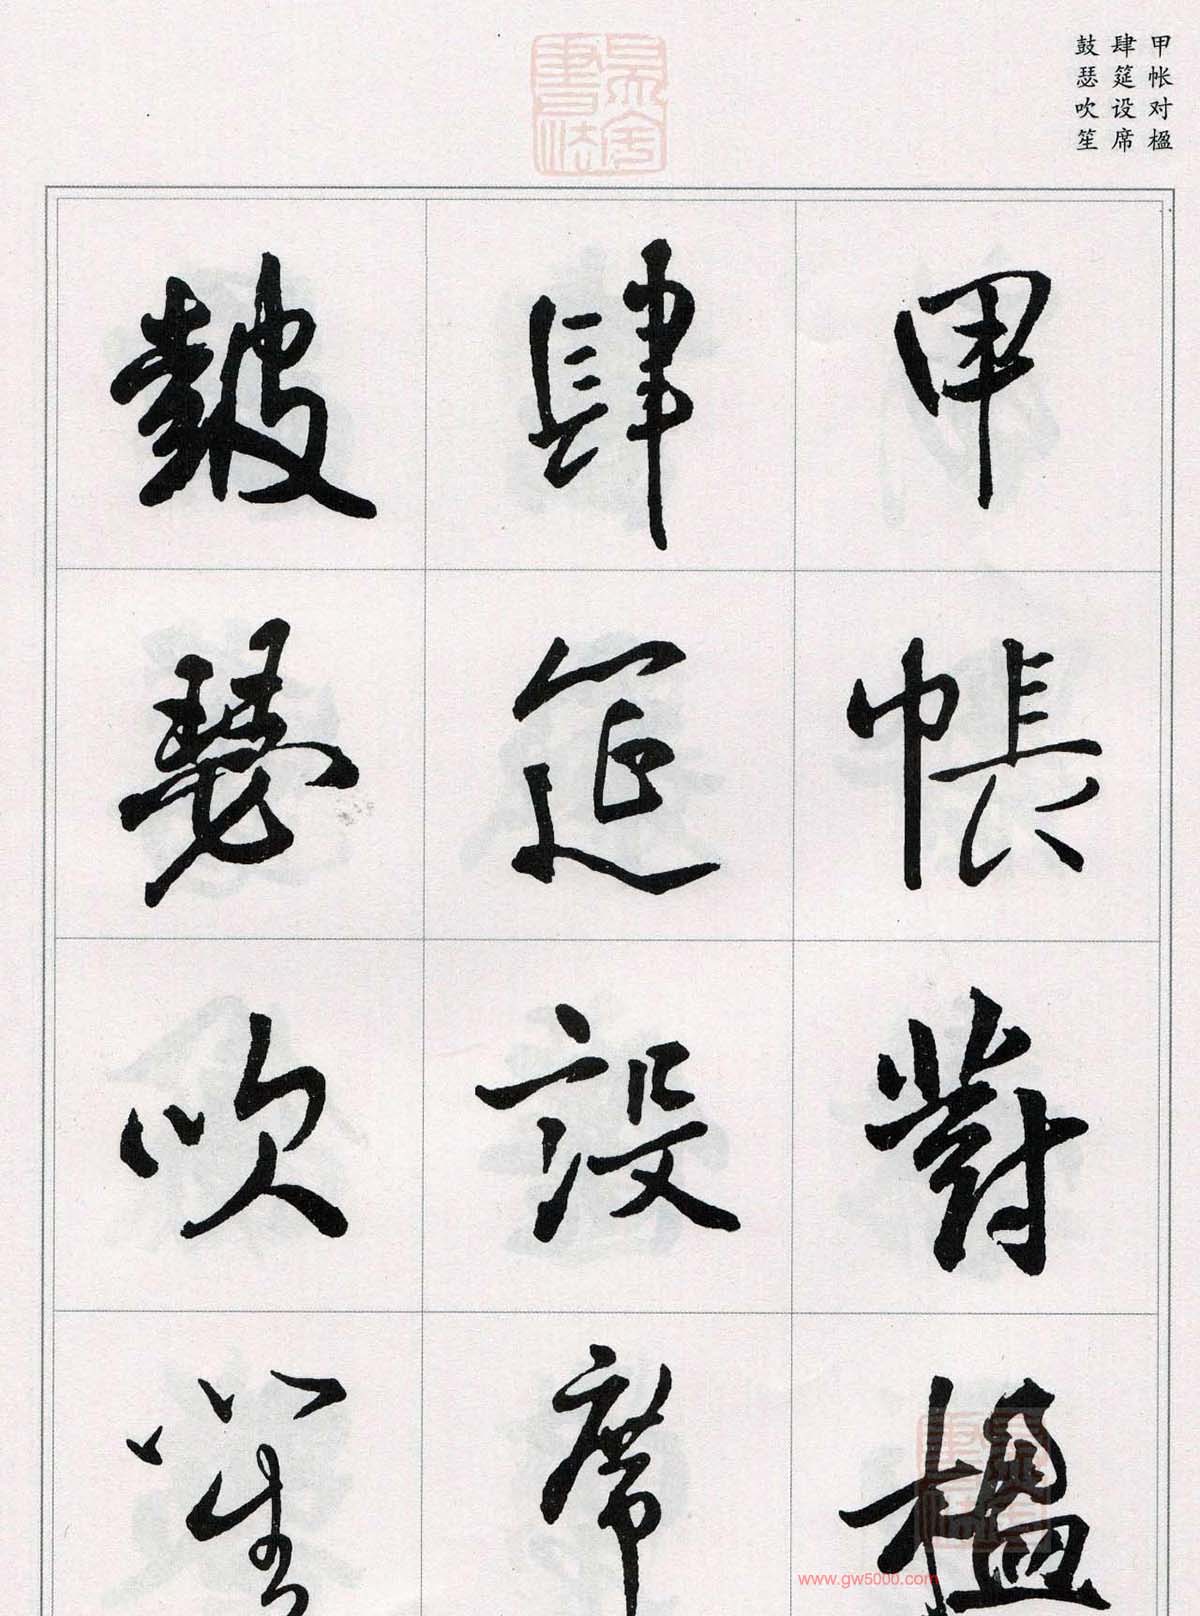 甲帐对楹
肆筵设席
鼓瑟吹笙
甲帳對楹
肆筵設席
鼓瑟吹笙
www.gw5000.com